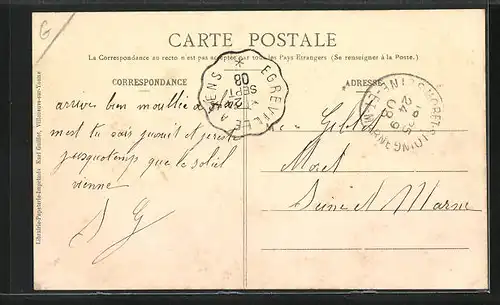 G
CARTE POSTALE
La Correspondance au recto n'est pas acceptée par tous les Pays Etrangers (Se renseigner à la Poste.)
CORRESPONDANCE
ADRESSE
EGREVILLE A SENS
SEPT
08
MORET-LOING
SEINE-ET-M
24
08
arrivé bien mouillé
mest tu sais quoi et je reste
jusquotemp que le soleil
vienne
S G
Moret
Seine et Marne
Librairie-Papeterie-Imprimés Karl Guillot, Villeneuve-sur-Yonne